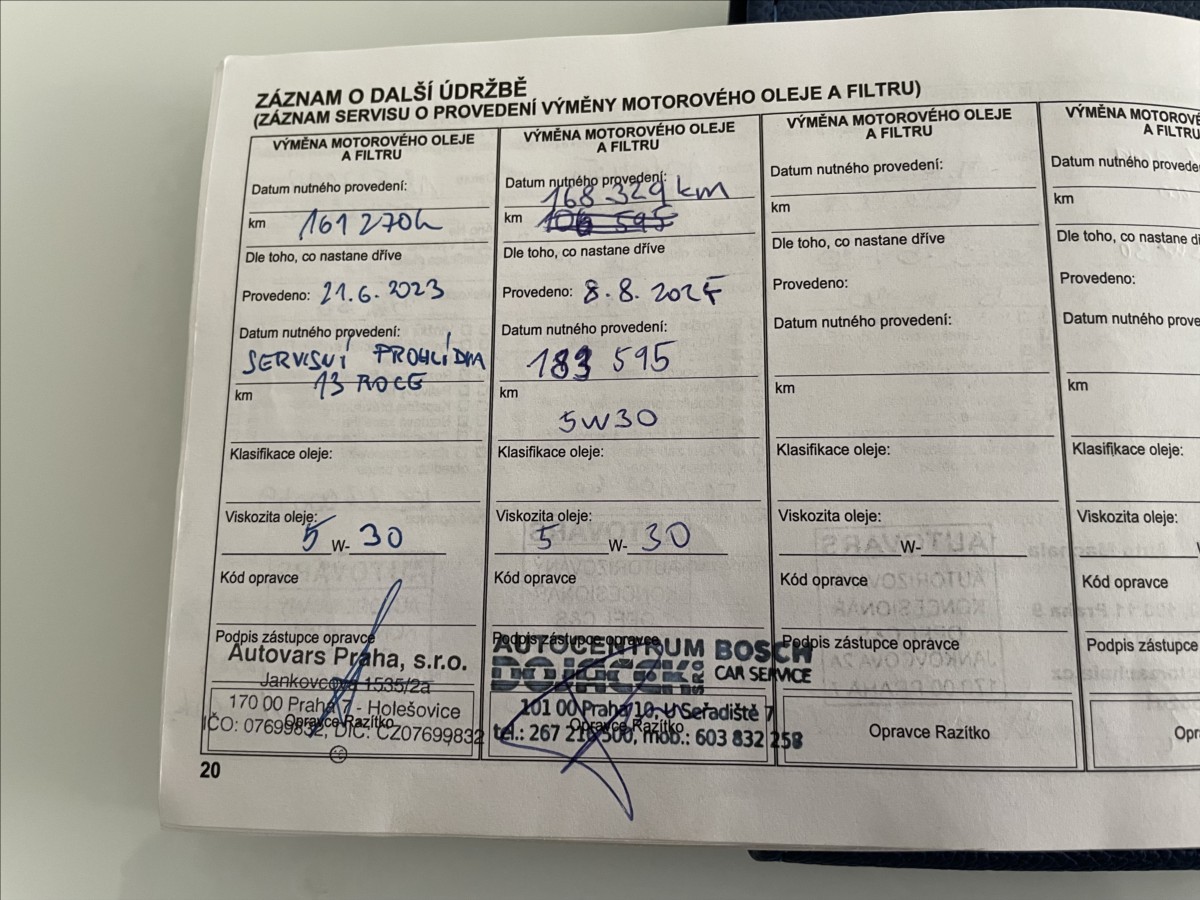 ZÁZNAM O DALŠÍ ÚDRŽBĚ
(ZÁZNAM SERVISU O PROVEDENÍ VÝMĚNY MOTOROVÉHO OLEJE A FILTRU)
VÝMĚNA MOTOROVÉHO OLEJE
A FILTRU
Datum nutného provedení:
km 161 270
Dle toho, co nastane dříve
Provedeno: 21.6.2023
Datum nutného provedení:
SERVISNÍ
13 ROCE
km
Klasifikace oleje:
Viskozita oleje:
5 W- 30
Kód opravce
Podpis zástupce opravce
Autovars Praha, s.r.o.
Jankovcova 1535/2a
170 00 Praha 7 - Holešovice
Opravce Razítko
IČO: 07699832, DIČ: CZ07699832
20
VÝMĚNA MOTOROVÉHO OLEJE
A FILTRU
Datum nutného provedení:
168 329 km
km
Dle toho, co nastane dříve
Provedeno: 8.8.202
Datum nutného provedení:
183 595
km
5W30
Klasifikace oleje:
Viskozita oleje:
5 W- 30
Kód opravce
Podpis zástupce opravce
AUTOCENTRUM BOSCH
CAR SERVICE
101 00 Praha 10, U Seřadiště 7
Opravce Razítko
tel.: 267 21 500, mob.: 603 832 258
VÝMĚNA MOTOROVÉHO OLEJE
A FILTRU
Datum nutného provedení:
km
Dle toho, co nastane dříve
Provedeno:
Datum nutného provedení:
km
Klasifikace oleje:
Viskozita oleje:
W-
Kód opravce
Podpis zástupce opravce
Opravce Razítko
VÝMĚNA MOTOROVÉ
A FILTRU
Datum nutného provede
km
Dle toho, co nastane dř
Provedeno:
Datum nutného provede
km
Klasifikace oleje:
Viskozita oleje:
Kód opravce
Podpis zástupce
Opr